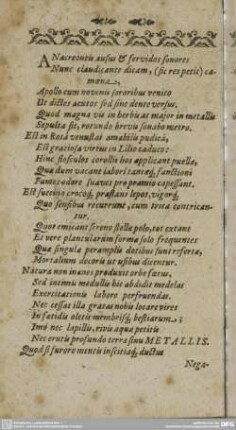 ANacreontis ausus & fervidos sonores
Nunc claudicante dicam, (sic res petit) ca-
mœna,
Apollo cum novenis sororibus venito
Ut dictes acutos sed sine dente versus,
Quod magna vis in herbis at major in metallis
Sepulta sit, rotundo brevis sonabo metro.
Est in Rosâ venustas amabilis pudica,
Est gratiosa virtus in Lilio caduco:
Hinc flosculos corollis hos applicant puellæ,
Qua dum vacant labori tantoq, sanctioni
Fumos odore suaves pro præmio capessant.
Est succus croco, præstans lepos, vigorq,
Quo sensibus recurrunt, cum tristia contrican-
tur.
Quot emicant serenæ stellæ polo, tot extant
Et vere plantularum formæ solo frequentes
Quæ singulæ peramplis dotibus sunt refertæ,
Mortalium decori ut usibus dicentur.
Natura non inanes produxit orbe fœtus,
Sed intimis medullis hic abdidit medelas
Exercitationis labore perfruendas.
Nec cessat illa gratas nobis locare vires
In fœtidis oletis membrisq, bestiarum;
Imò nec lapillis, rivis aquæ petitis
Nec erutis profundo terræ sinu METALLIS.
Quod si furore mentis inscitiaq, ductus
Nega-